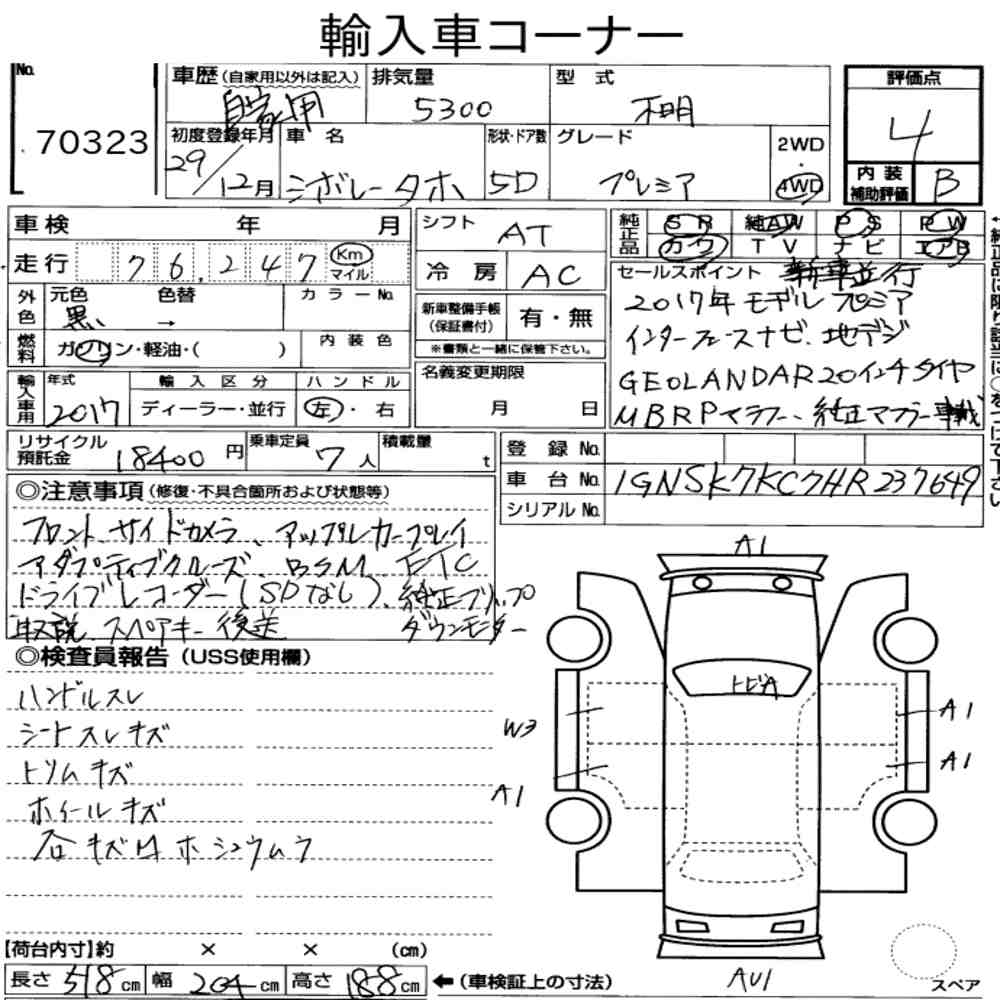 輸入車コーナー
No.
70323
車歴 (自家用以外は記入)
自家用
排気量
5300
型 式
不明
評価点
4
内装補助評価
B
初度登録年月
29/12月
車 名
シボレータホ
形状・ドア数
5D
グレード
プレミア
2WD
・
4WD
車検 年 月
走行 76,247 Km マイル
外色
元色 色替
黒 →
カラーNo.
燃料
ガソリン・軽油・( )
内装色
輸入車用
年式
2017
輸入区分
ディーラー・並行
ハンドル
左・右
シフト
AT
冷房
AC
新車整備手帳
(保証書付)
有・無
※書類と一緒に保管下さい。
名義変更期限
月 日
純正品
SR 純AW PS PW
カワ TV ナビ エアB
セールスポイント 新車並行
2017年モデル プレミア
インターフェースナビ、地デジ
GEOLANDAR20インチタイヤ
MBRPマフラー、純正マフラー車載
リサイクル
預託金
18400円
乗車定員
7人
積載量
t
登録No.
車台No.
1GNSK7KC7HR237649
シリアルNo.
◎注意事項 (修復・不具合箇所および状態等)
フロント、サイドカメラ、アップルカープレイ
アダプティブクルーズ、BSM、ETC
ドライブレコーダー(SDなし)、純正フリップ
ダウンモニター
取説、スペアキー後送
◎検査員報告 (USS使用欄)
ハンドルスレ
シートスレキズ
トリムキズ
ホイールキズ
A1
トビA
W3
A1
A1
A1
AU1
スペア
【荷台内寸】約 × × (cm)
長さ 518cm 幅 204cm 高さ 188cm ←(車検証上の寸法)